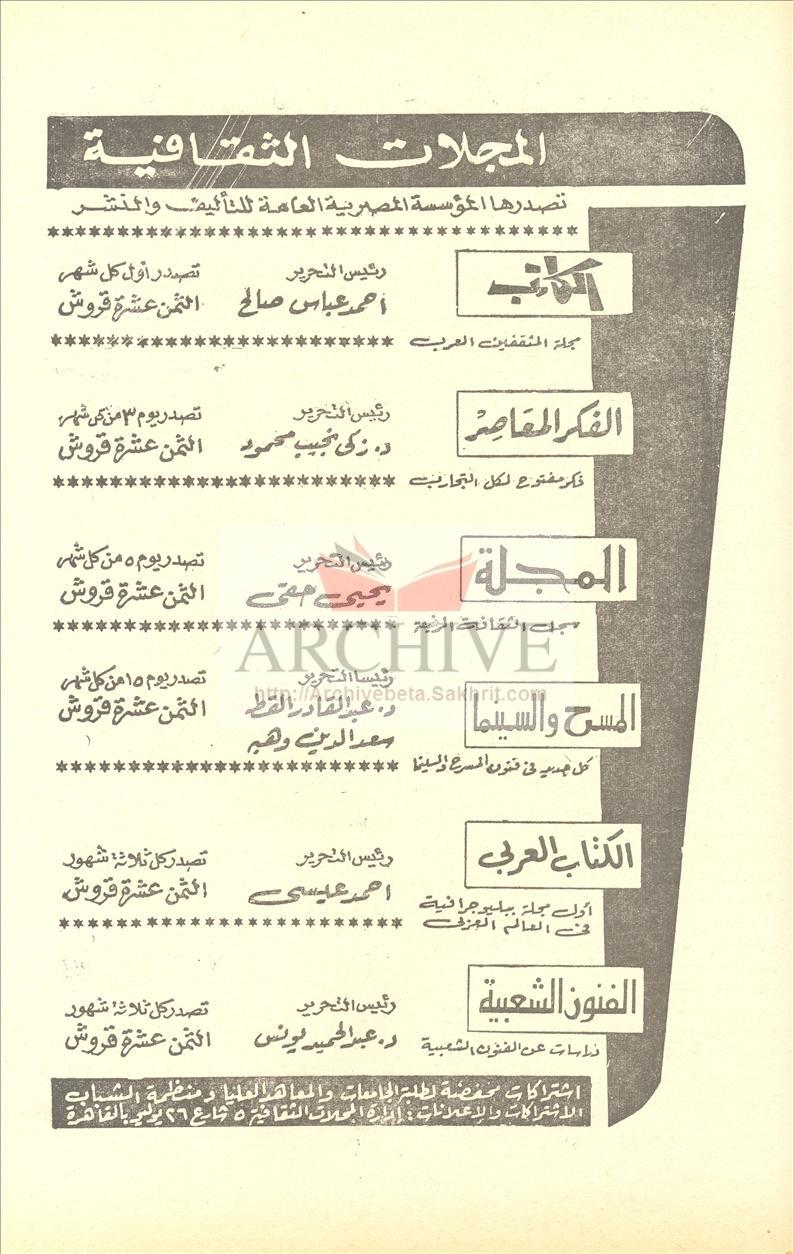 المجلات الثقافية
تصدرها المؤسسة المصرية العامة للتأليف والنشر
الكاتب
رئيس التحرير
أحمد عباس صالح
تصدر أول كل شهر
الثمن عشرة قروش
مجلة المثقفين العرب
الفكر المعاصر
رئيس التحرير
د. زكى نجيب محمود
تصدر يوم ٣ من كل شهر
الثمن عشرة قروش
فكر مفتوح لكل التجارب
المجلة
رئيس التحرير
يحيى حقى
تصدر يوم ٥ من كل شهر
الثمن عشرة قروش
سجل الثقافة الرفيعة
ARCHIVE
http://Archivebeta.Sakhrit.com
المسرح والسينما
رئيسا التحرير
د. عبد القادر القط
سعد الدين وهبه
تصدر يوم ١٥ من كل شهر
الثمن عشرة قروش
كل جديد فى فنون المسرح والسينما
الكتاب العربى
رئيس التحرير
احمد عيسى
تصدر كل ثلاثة شهور
الثمن عشرة قروش
أول مجلة ببليوجرافية
فى العالم العربى
الفنون الشعبية
رئيس التحرير
د. عبد الحميد يونس
تصدر كل ثلاثة شهور
الثمن عشرة قروش
دراسات عن الفنون الشعبية
اشتراكات مخفضة لطلبة الجامعات والمعاهد العليا ومنظمة الشباب
الاشتراكات والإعلانات : إدارة المجلات الثقافية ٥ شارع ٢٦ يوليو بالقاهرة